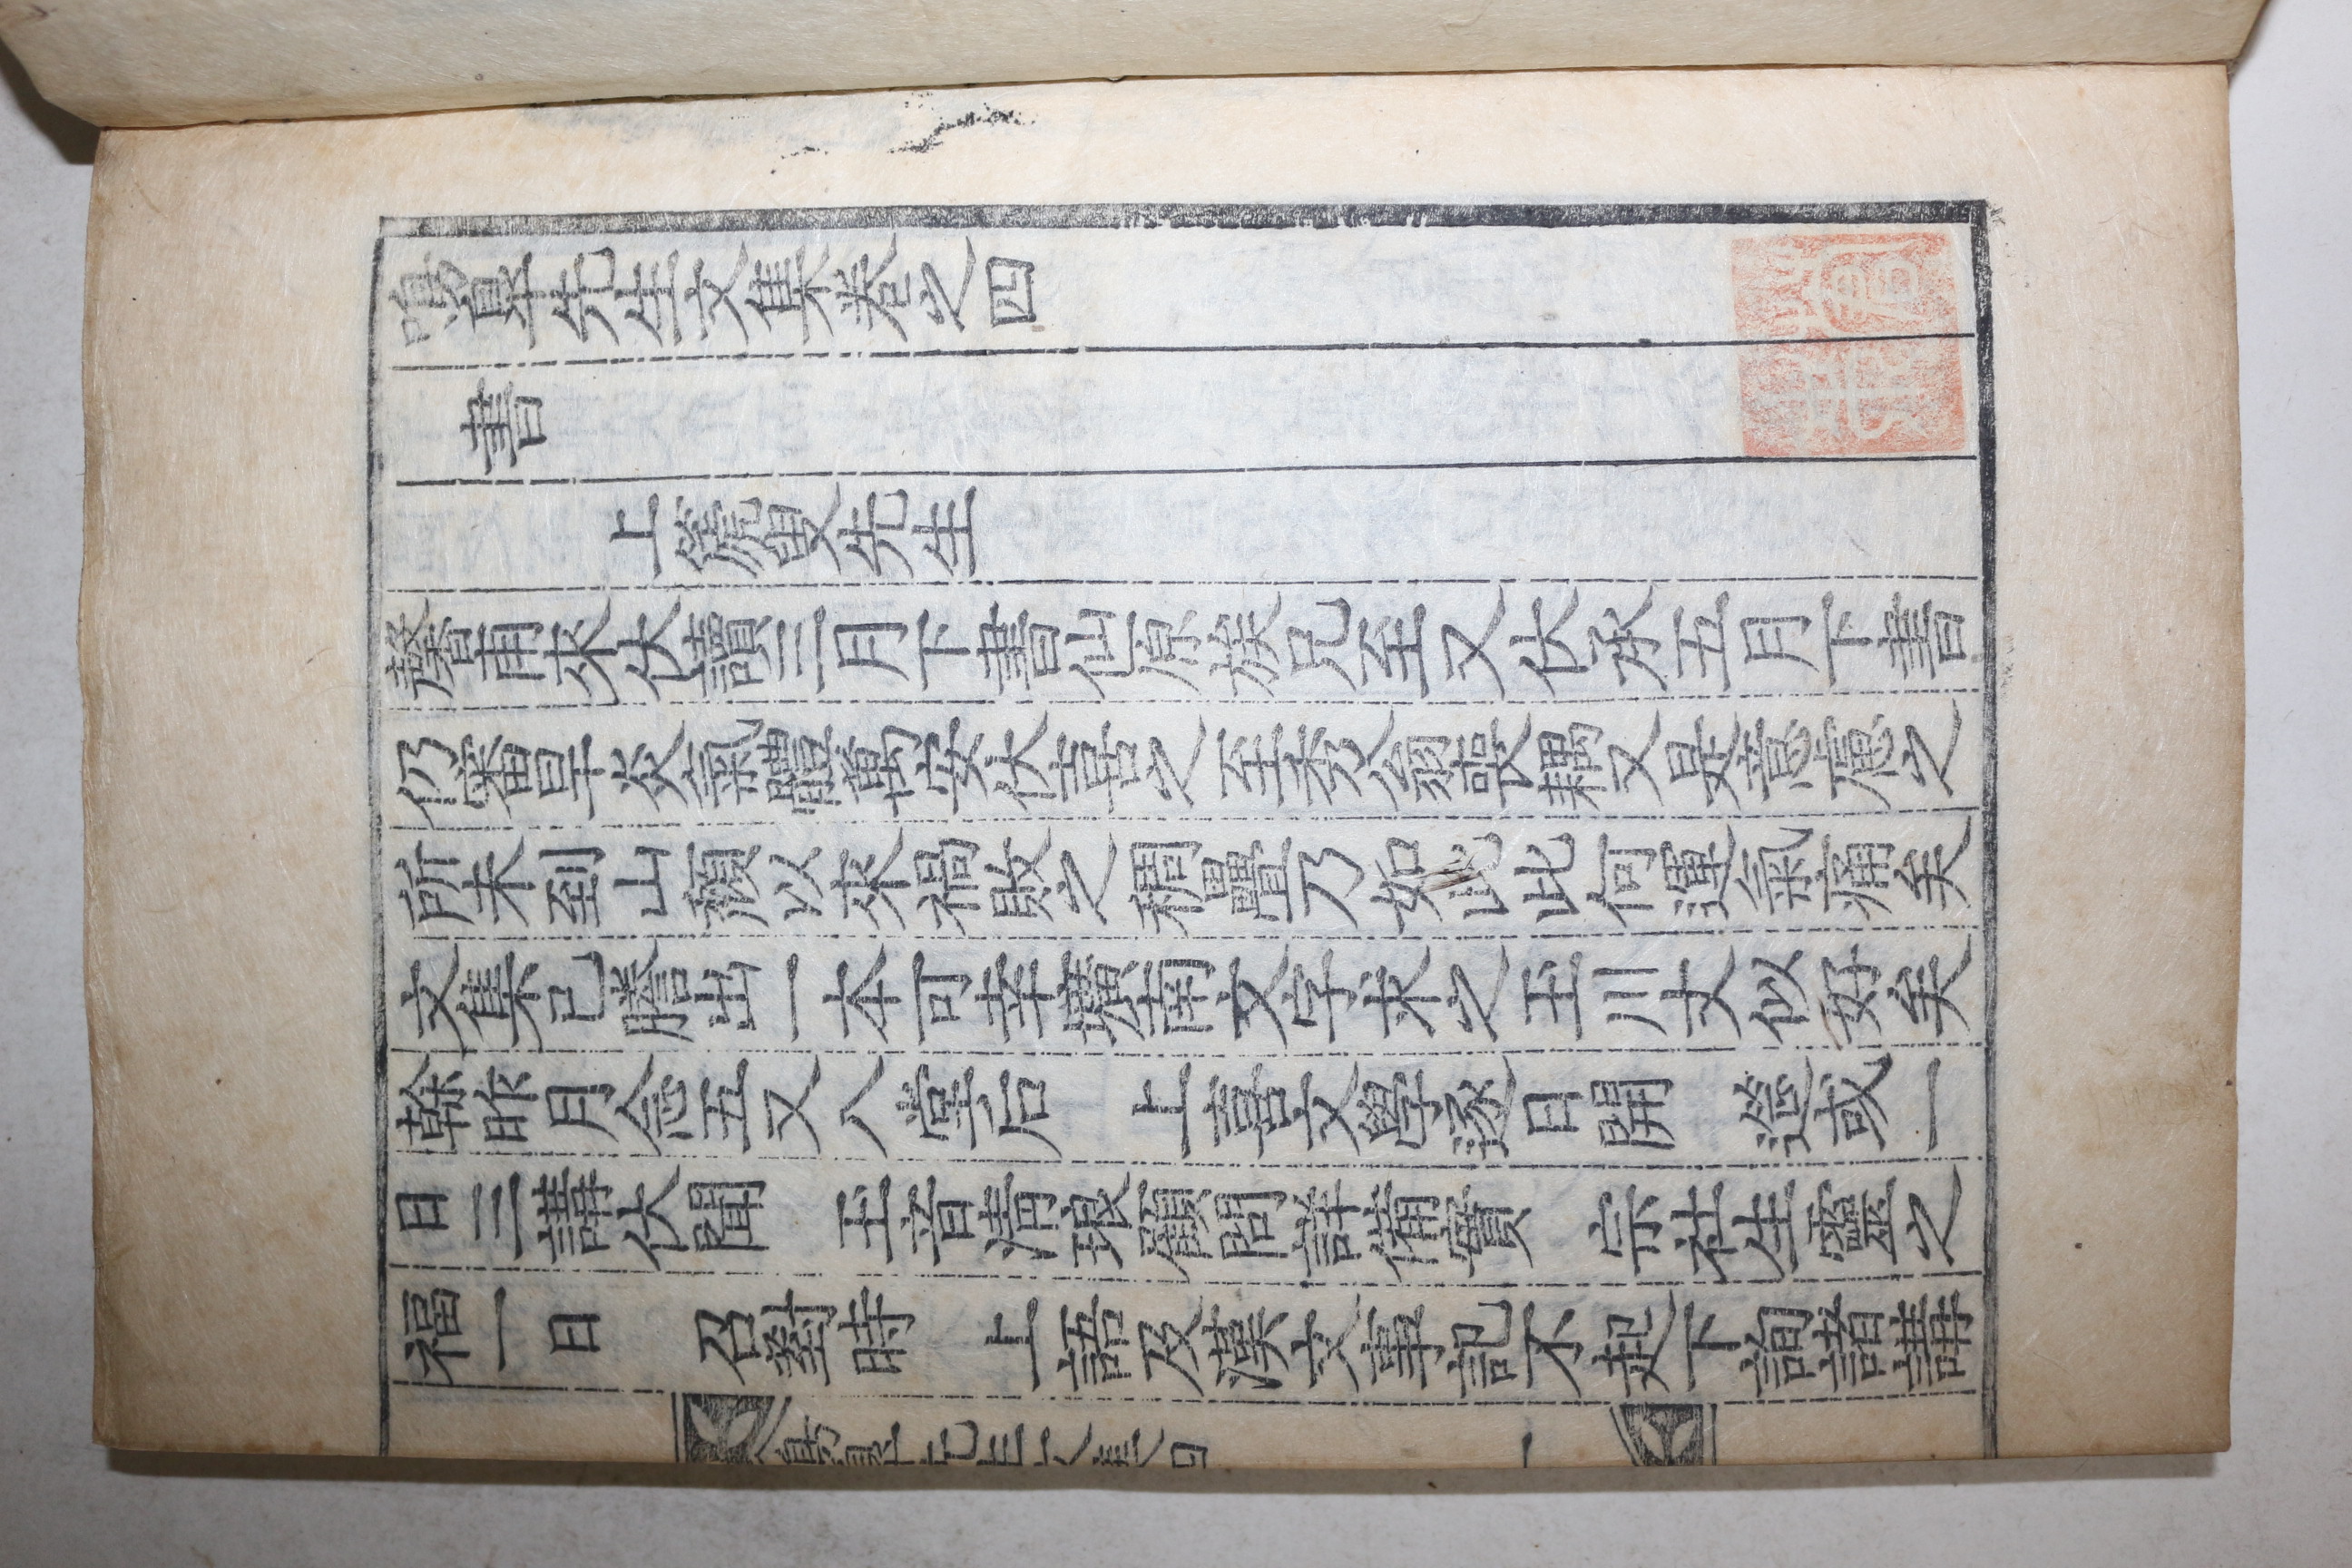 鳴臯先生文集卷之四
書
上篪叟先生
馨甫來伏讀三月下書仙原族兄至又伏承五月下書
仍審旱炎氣體萬安伏喜之至秀翁喪耦又是意慮之
所未到山頹以來禍敗之稠疊乃如此此何運氣痛矣
文集已謄出一本可幸壙南文字求之玉川丈似好矣
榦昨月念五又八堂后 上喜文學逐日開 筵或一
日三講伏聞 王音淸琅顧問詳備實 宗社生靈之
福一日 召對時 上語及漢文事記不起下詢諸講
鳴臯先生文集四
一